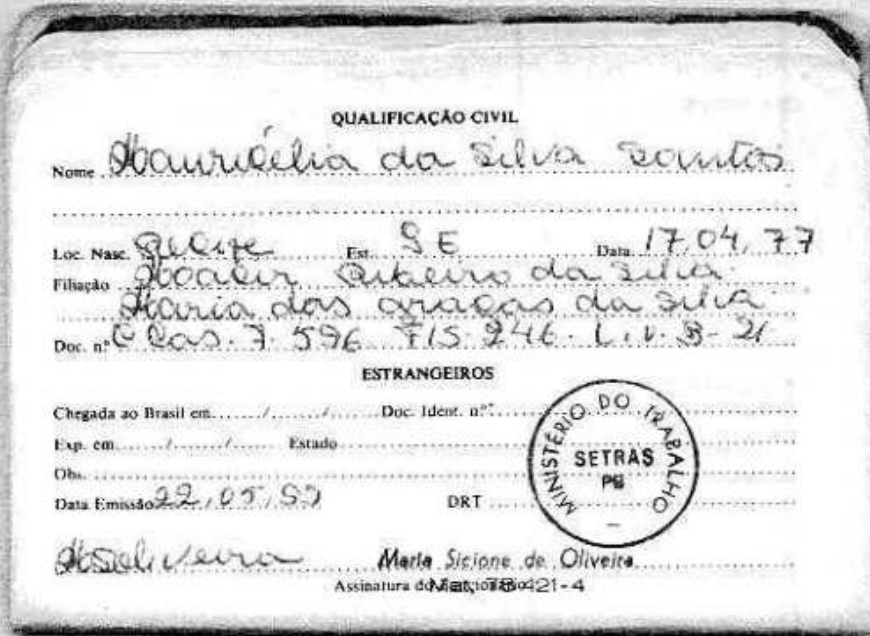 QUALIFICAÇÃO CIVIL
Nome Mauricélia da Silva Santos
Loc. Nasc. Est. SE Data 17.04.77
Filiação Moacir Ribeiro da Silva
Maria das Graças da Silva
Doc. nº C Cas. 7.596 FLS 246. Liv. B-21
ESTRANGEIROS
Chegada ao Brasil em ...../...../..... Doc. Ident. nº
Exp. em ...../...../..... Estado
Obs.
Data Emissão 22.05. DRT
MINISTÉRIO DO TRABALHO
SETRAS
PB
Maria Sicione de Oliveira
Assinatura do Funcionário
Mat. 421-4